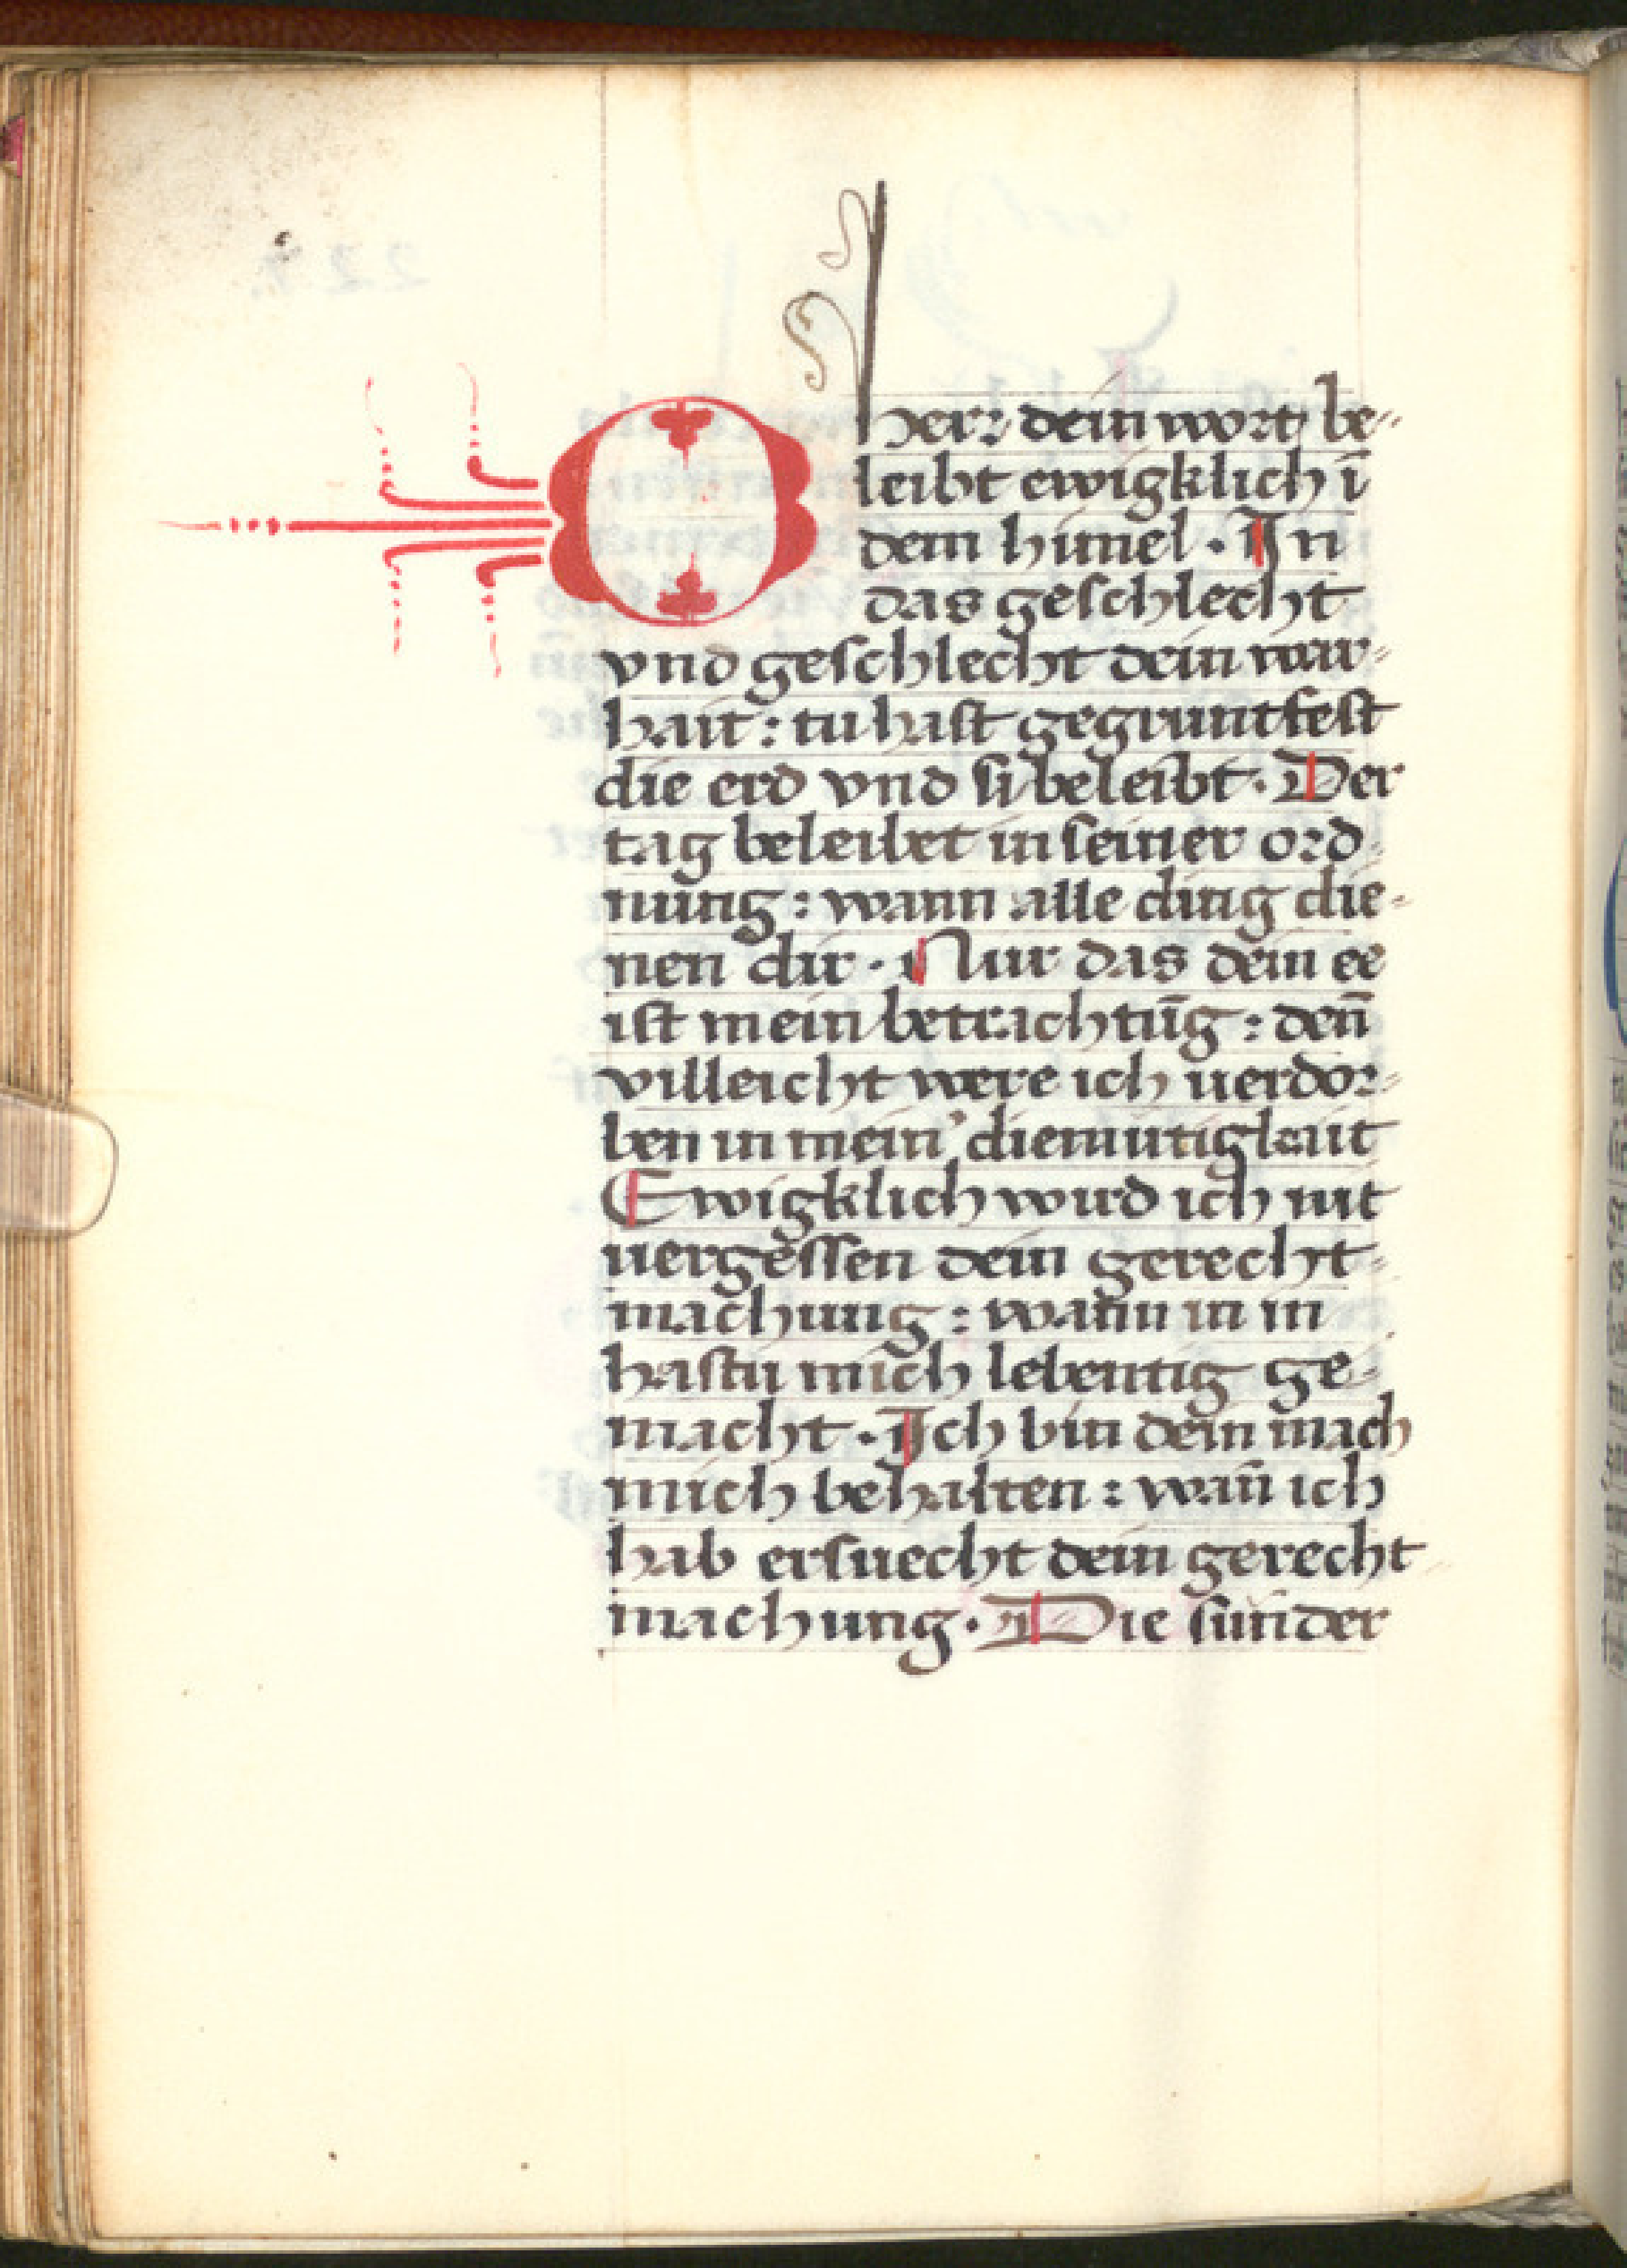 O herr dein wort be-
leibt ewigklich ī
dem himel · In
das geschlecht
vnd geschlecht dein war-
hait : tu hast gegruntfest
die erd vnd si beleibt · Der
tag beleibet in seiner ord
nung : wann alle ding die-
nen dir · Nur das dein ee
ist mein betrachtūg : den̄
villeicht were ich uerdor-
ben in mein' diemutigkait
Ewigklich wird ich nit
uergessen dein gerecht-
machung : wann in in
hastu mich lebentig ge-
macht · Ich bin dein mach
mich behalten : wan̄ ich
hab ersuecht dein gerecht
machung · Die sunder